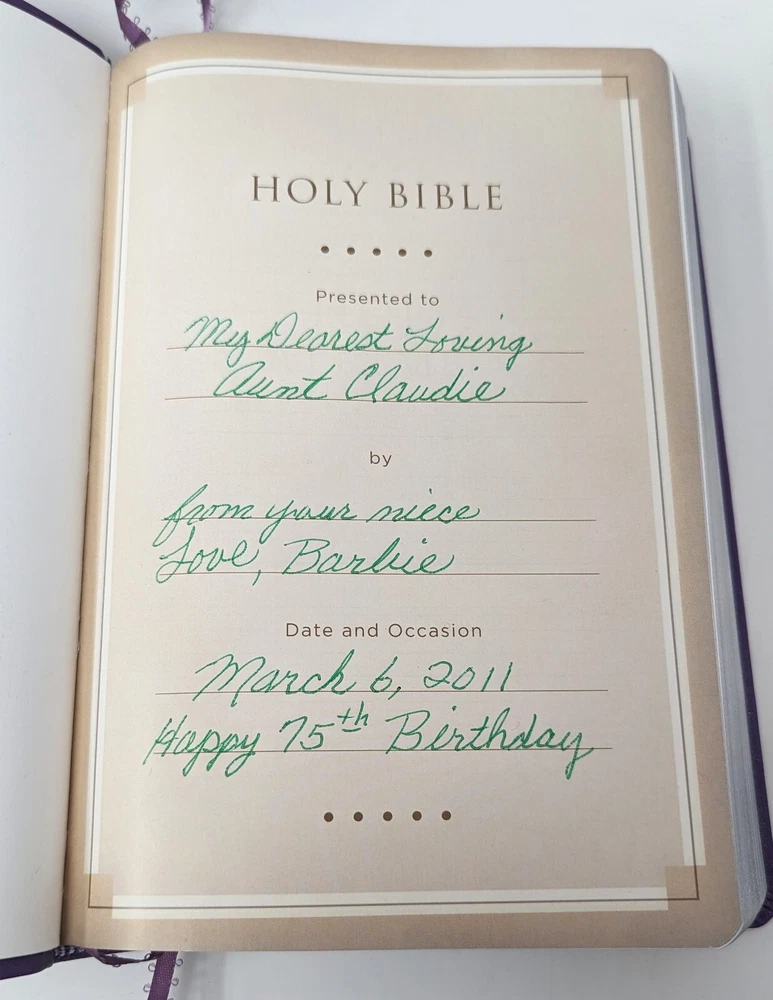 HOLY BIBLE
Presented to
My Dearest Loving
Aunt Claudie
by
from your niece
Love, Barbie
Date and Occasion
March 6, 2011
Happy 75th Birthday